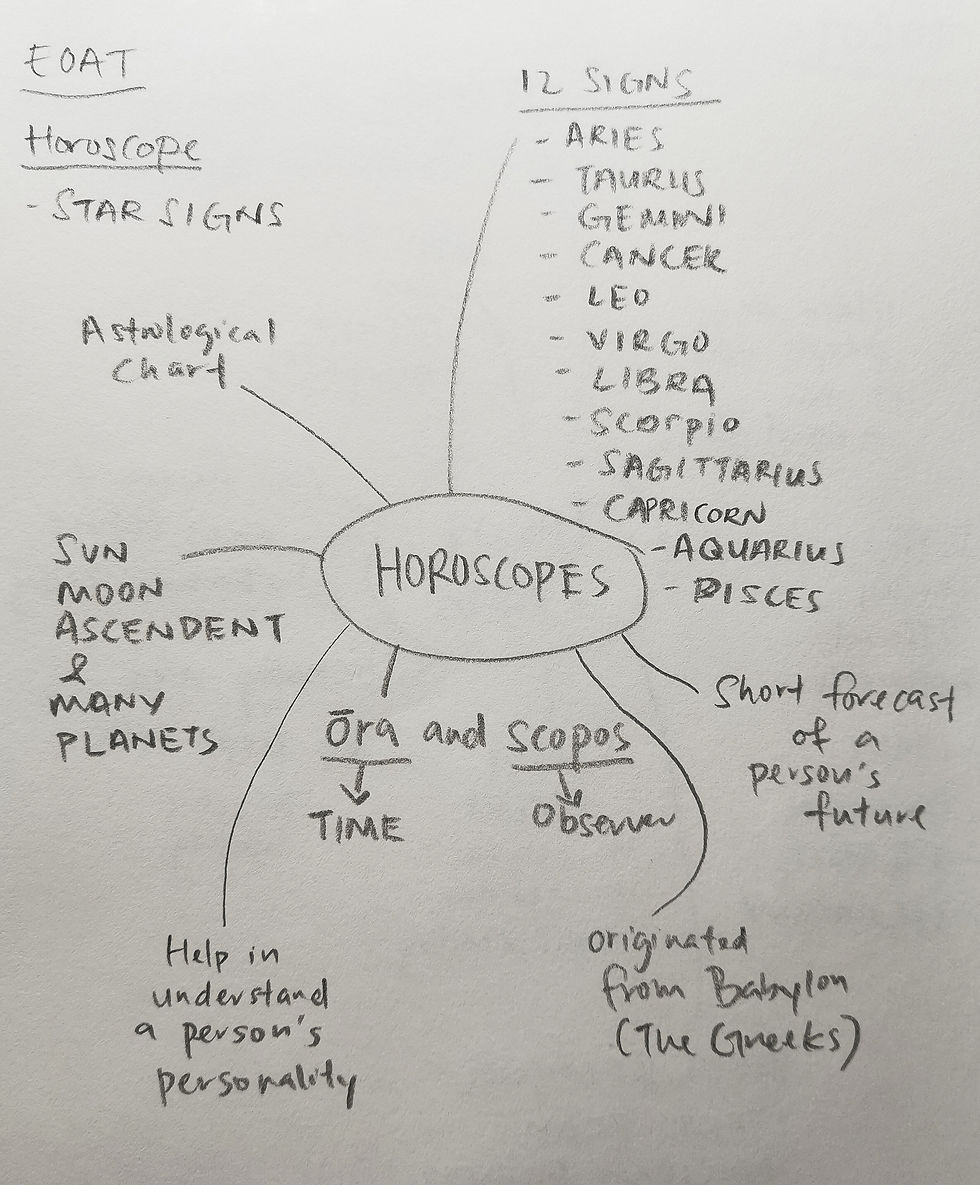 EOAT
Horoscope
- STAR SIGNS
12 SIGNS
- ARIES
- TAURUS
- GEMINI
- CANCER
- LEO
- VIRGO
- LIBRA
- Scorpio
- SAGITTARIUS
- CAPRICORN
- AQUARIUS
- PISCES
Astrological
Chart
HOROSCOPES
SUN
MOON
ASCENDENT
&
MANY
PLANETS
Ōra and scopos
TIME
Observer
Short forecast
of a
person's
future
Help in
understand
a person's
personality
originated
from Babylon
(The Greeks)